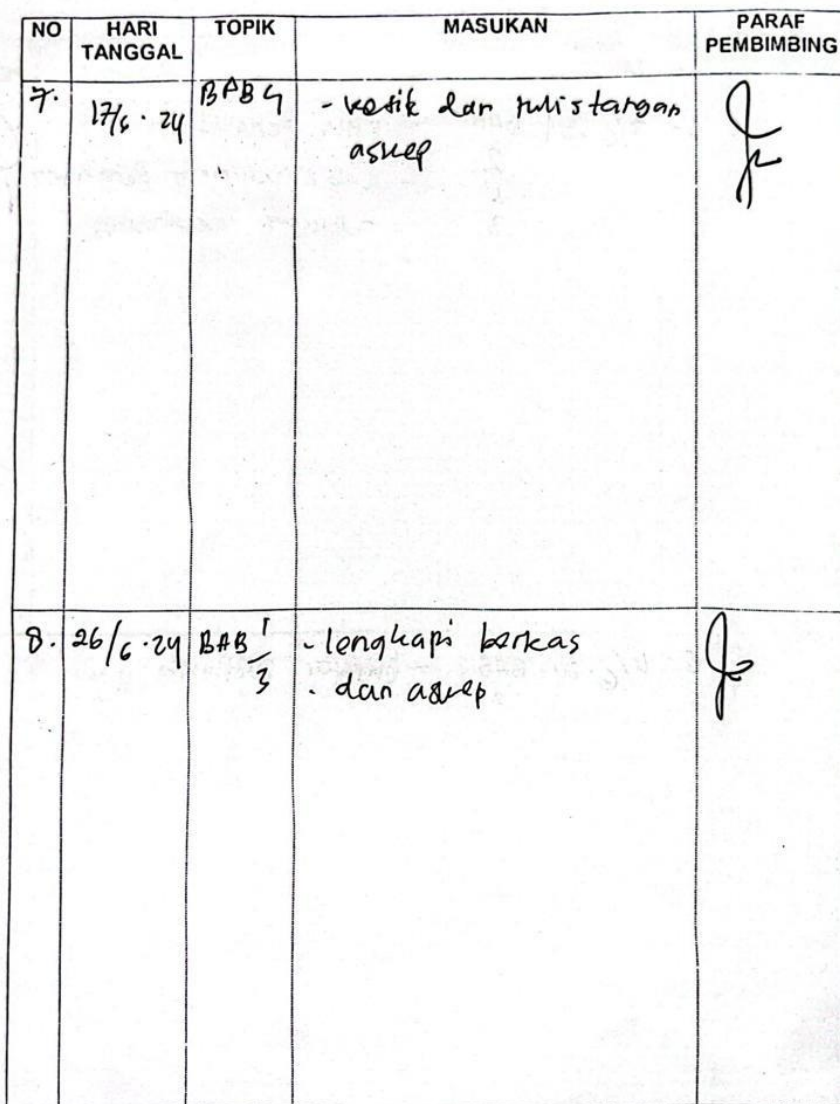 NO HARI TANGGAL TOPIK MASUKAN PARAF PEMBIMBING
7. 17/6 · 24 BAB 4 - ketik dan tulis tangan
askep
8. 26/6 · 24 BAB 1/3 - lengkapi berkas
- dan askep